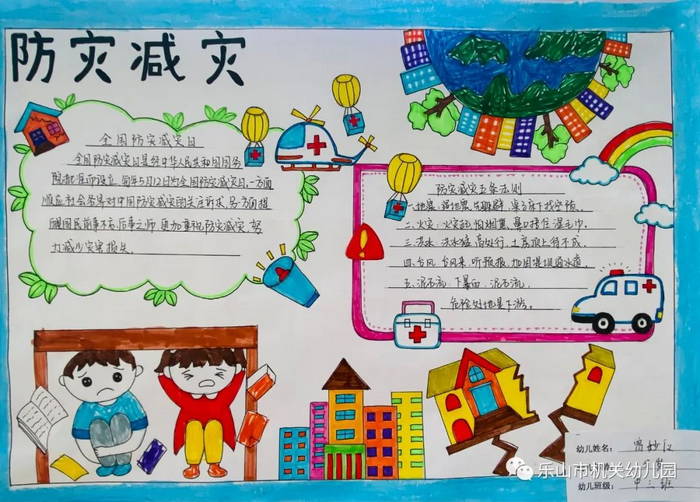 防灾减灾
全国防灾减灾日
全国防灾减灾日是经中华人民共和国国务
院批准而设立,每年5月12日为全国防灾减灾日,一方面
顺应社会各界对中国防灾减灾的关注诉求,另一方面提
醒国民前事不忘,后事之师,更加重视防灾减灾,努
力减少灾害损失。
防灾减灾五条法则
一、地震,遇地震,先躲避,桌子床下找空隙。
二、火灾,火灾起,怕烟熏,鼻口捂住湿毛巾,
三、洪水,洪水猛,高处行,土房顶上待不成,
四、台风,台风来,听预报,加固堤坝通水道,
五、泥石流,下暴雨,泥石流,
危险处地是下游。
幼儿姓名:
幼儿班级:
乐山市机关幼儿园